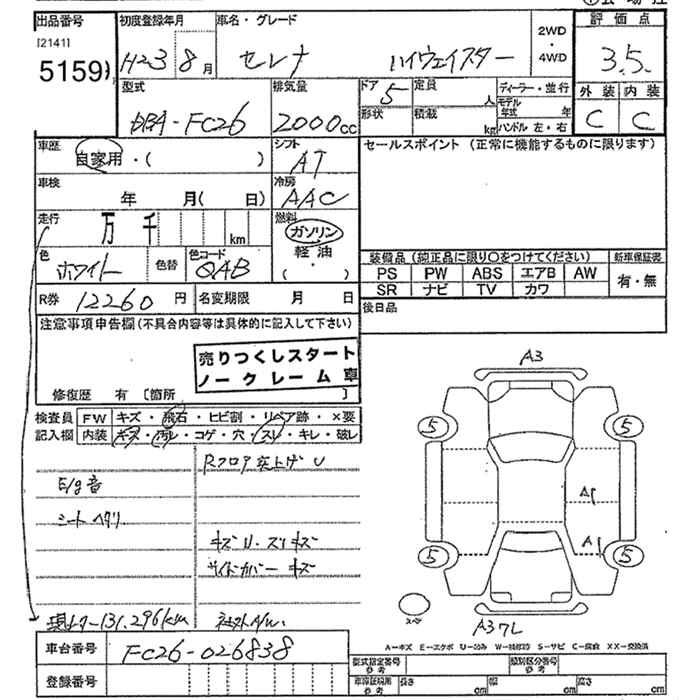 出品番号 初度登録年月 車名・グレード 2WD・4WD 評価点
[2141] 5159 H23 8月 セレナ ハイウェイスター 3.5
型式 排気量 ドア 定員 ディーラー・並行 外装 内装
DBA-FC26 2000cc 5 人 モデル年式 年 C C
形状 積載 kg ハンドル 左・右
車歴 自家用・( ) シフト AT セールスポイント (正常に機能するものに限ります)
車検 年 月( 日) 冷房 AAC
走行 万 千 km 燃料 ガソリン
軽油
( ・ )
色 ホワイト 色替 色コード QAB
装備品 (純正品に限り○をつけてください) 新車保証書
PS PW ABS エアB AW 有・無
SR ナビ TV カワ
R券 12260円 名変期限 月 日 後日品
注意事項申告欄(不具合内容等は具体的に記入して下さい)
売りつくしスタート
ノークレーム車
修復歴 有 〔箇所 〕
検査員 FW キズ・飛石・ヒビ割・リペア跡・×要
記入欄 内装 キズ・汚レ・コゲ・穴・スレ・キレ・破レ
Rフロア突上げU
E/g音
シートヘタリ
キズU・スリキズ
サイドカバーキズ
現メーター131,296km
A3
5 5
A1
A1
5 5
スペア
A37L
A-キズ E-エクボ U-凹み W-補修跡 S-サビ C-腐食 XX-交換済
車台番号 FC26-026838
登録番号
型式指定番号 参考 類別区分番号 参考
車庫証明用 参考 長さ cm 幅 cm 高さ cm